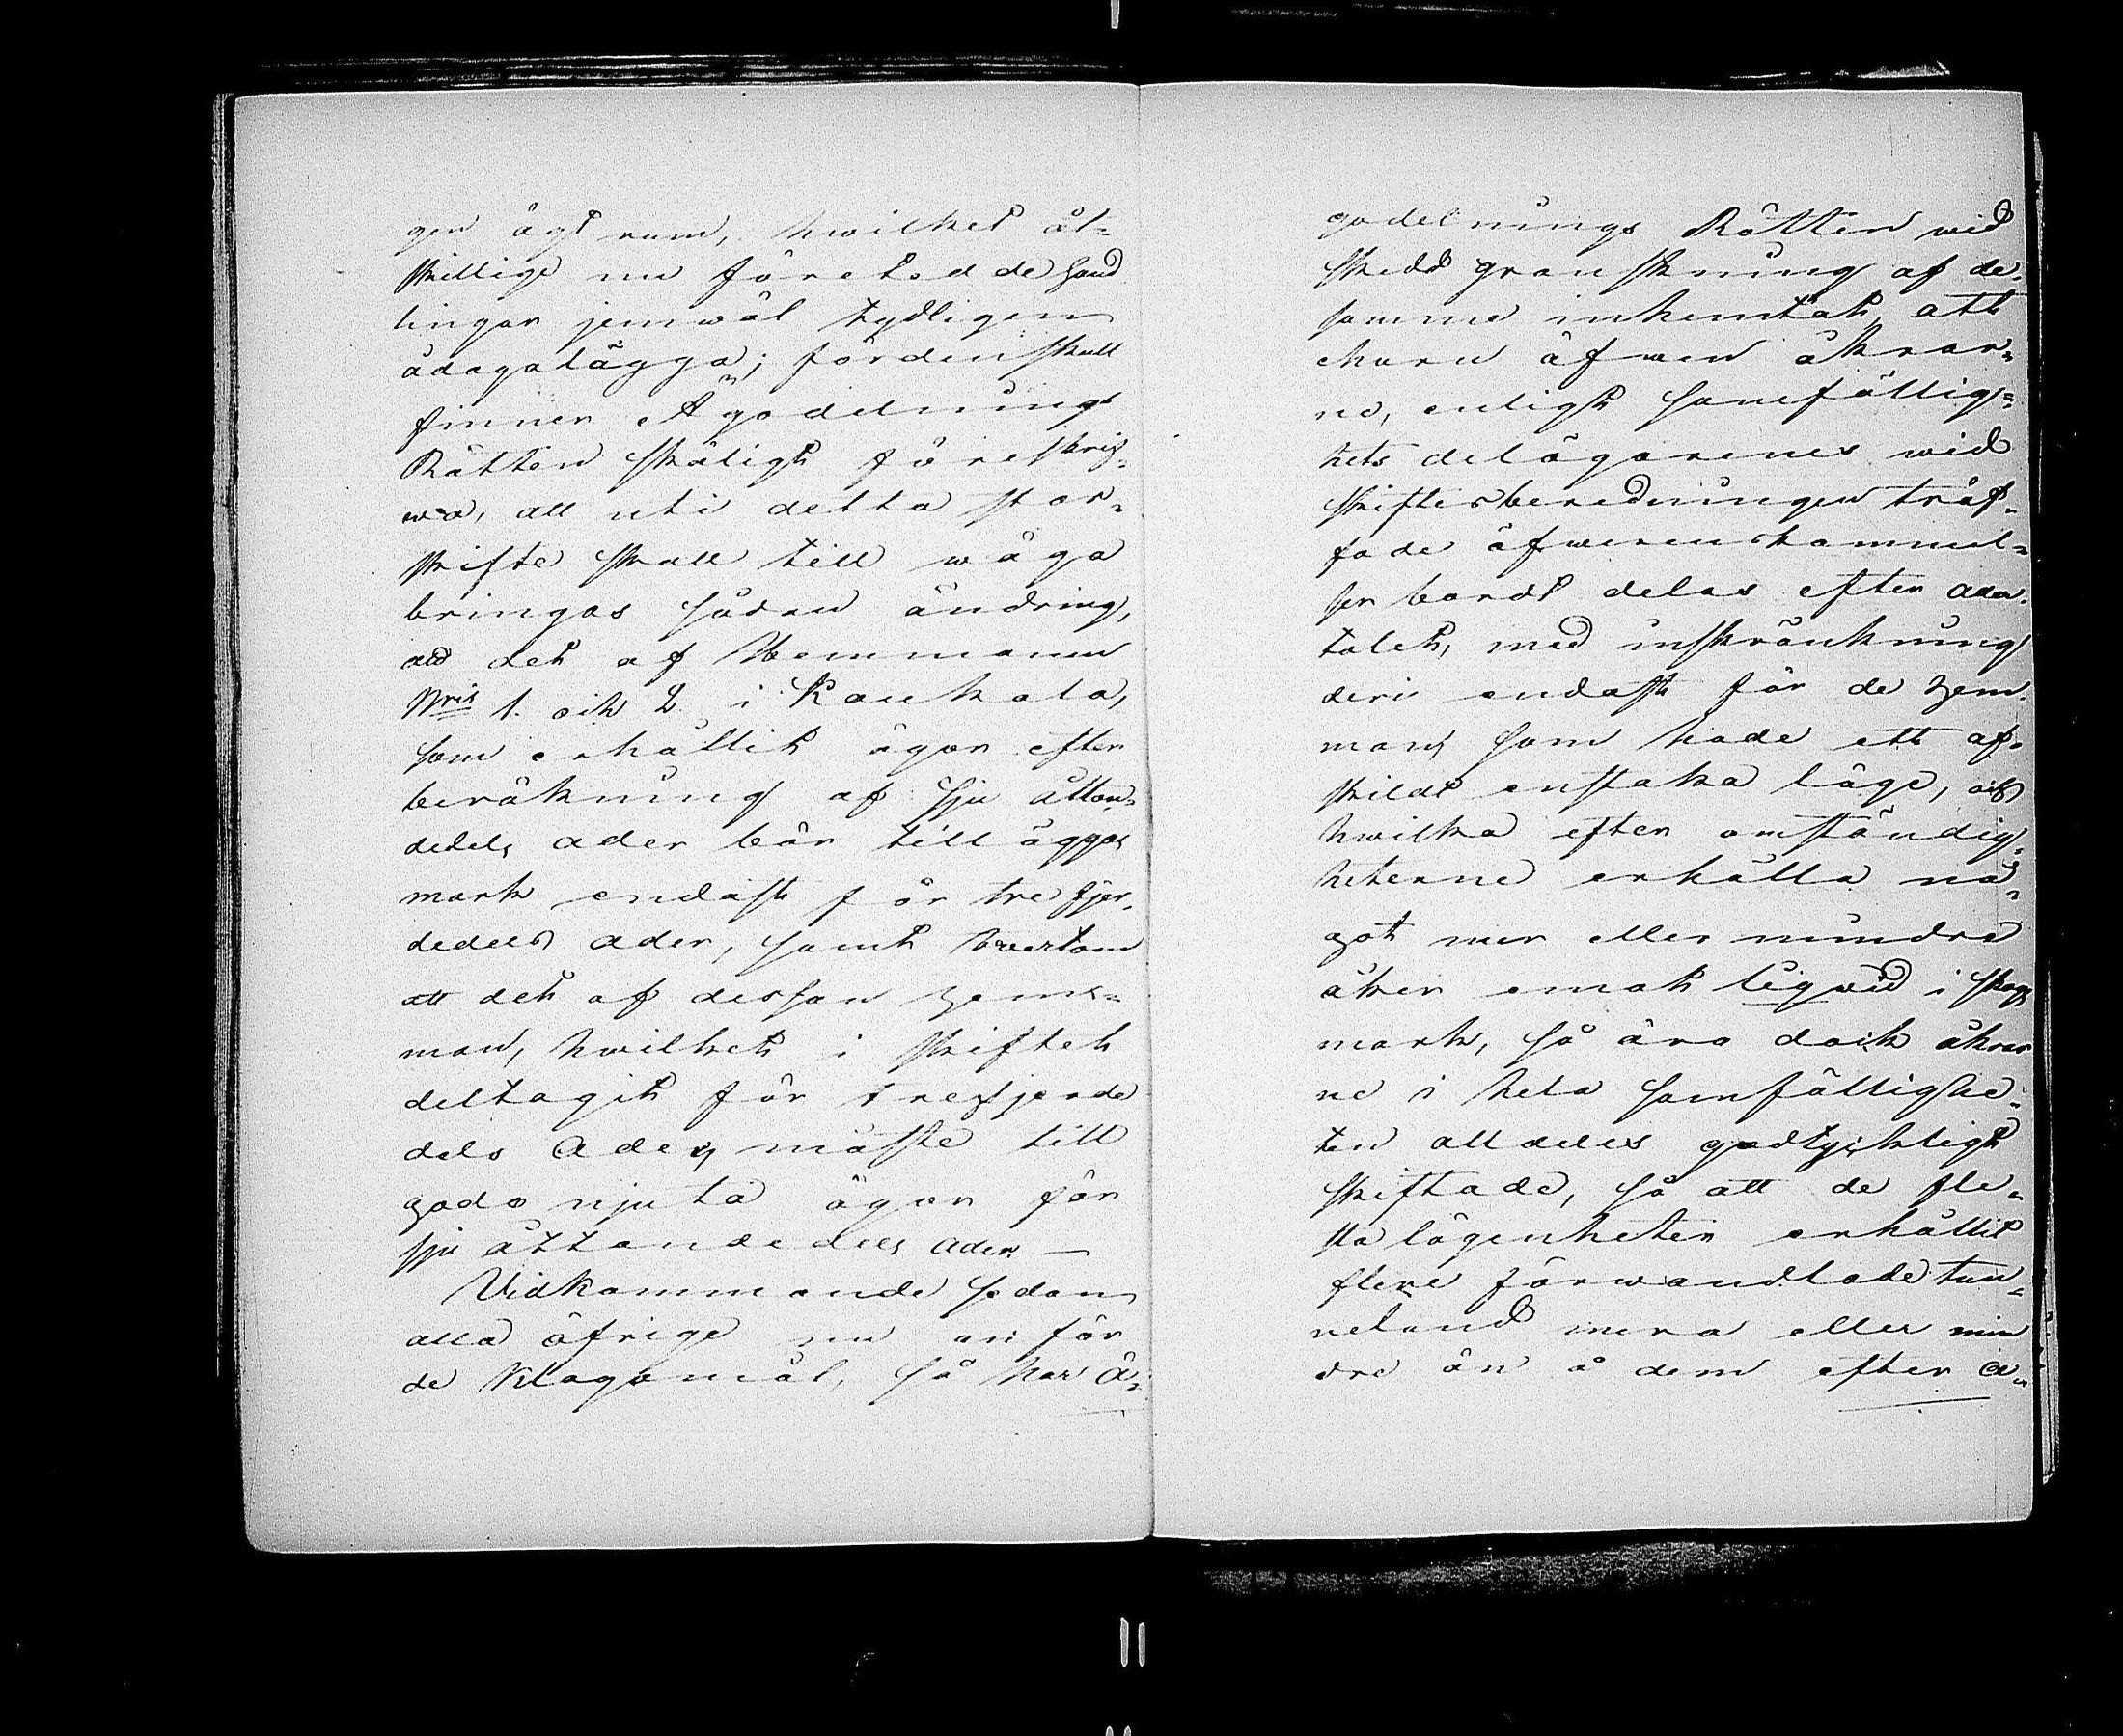 gen ägt rum, hwilket åt-
skillige nu företedde hand
lingar jemwäl tydligen
ådagalägga; fördenskull
finner Ägodelnings
Rätten skäligt föreskrif-
wa, att uti detta stor-
skifte skall till wäga
bringas sådan ändring,
att det af Hemmanen
Nris 1. och 2. i Kaukola,
som erhållit ägor efter
beräkning af sju åtton-
dedels ader bör tilläggas
mark endast för tre fjer-
dedels ader, samt twertom
att det af dessan hem-
man, hwilket i skiftet
deltagit för trefjerde
dels Ader, måste till
godo njuta ägor för
sju åttondedels ader. —
Vidkommande sedan
alla öfrige nu anför
de klagomål, så har Ä-
godelnings Rätten wid
skedd granskning af de-
samme inhemtat, att
ehuru äfwen åkrar-
ne, enligt samfällig-
hets delägarenes wid
skiftesberedningen träf-
fade öfwerenskommel-
ser bordt delas efter ader-
talet, med inskränkning
deri endast för de hem-
man, som hade ett af-
skildt enstaka läge, och
hwilka efter omständig-
heterne erhålla nå-
got mer eller mindre
åker emot liqwid i skogs
mark, så äro dock åkrar
ne i hela samfällighe-
ten alldeles godtyckligt
skiftade, så att de fle-
sta lägenheter erhållit
flere förwandlade tun-
neland mera eller min
dre än å dem efter a-